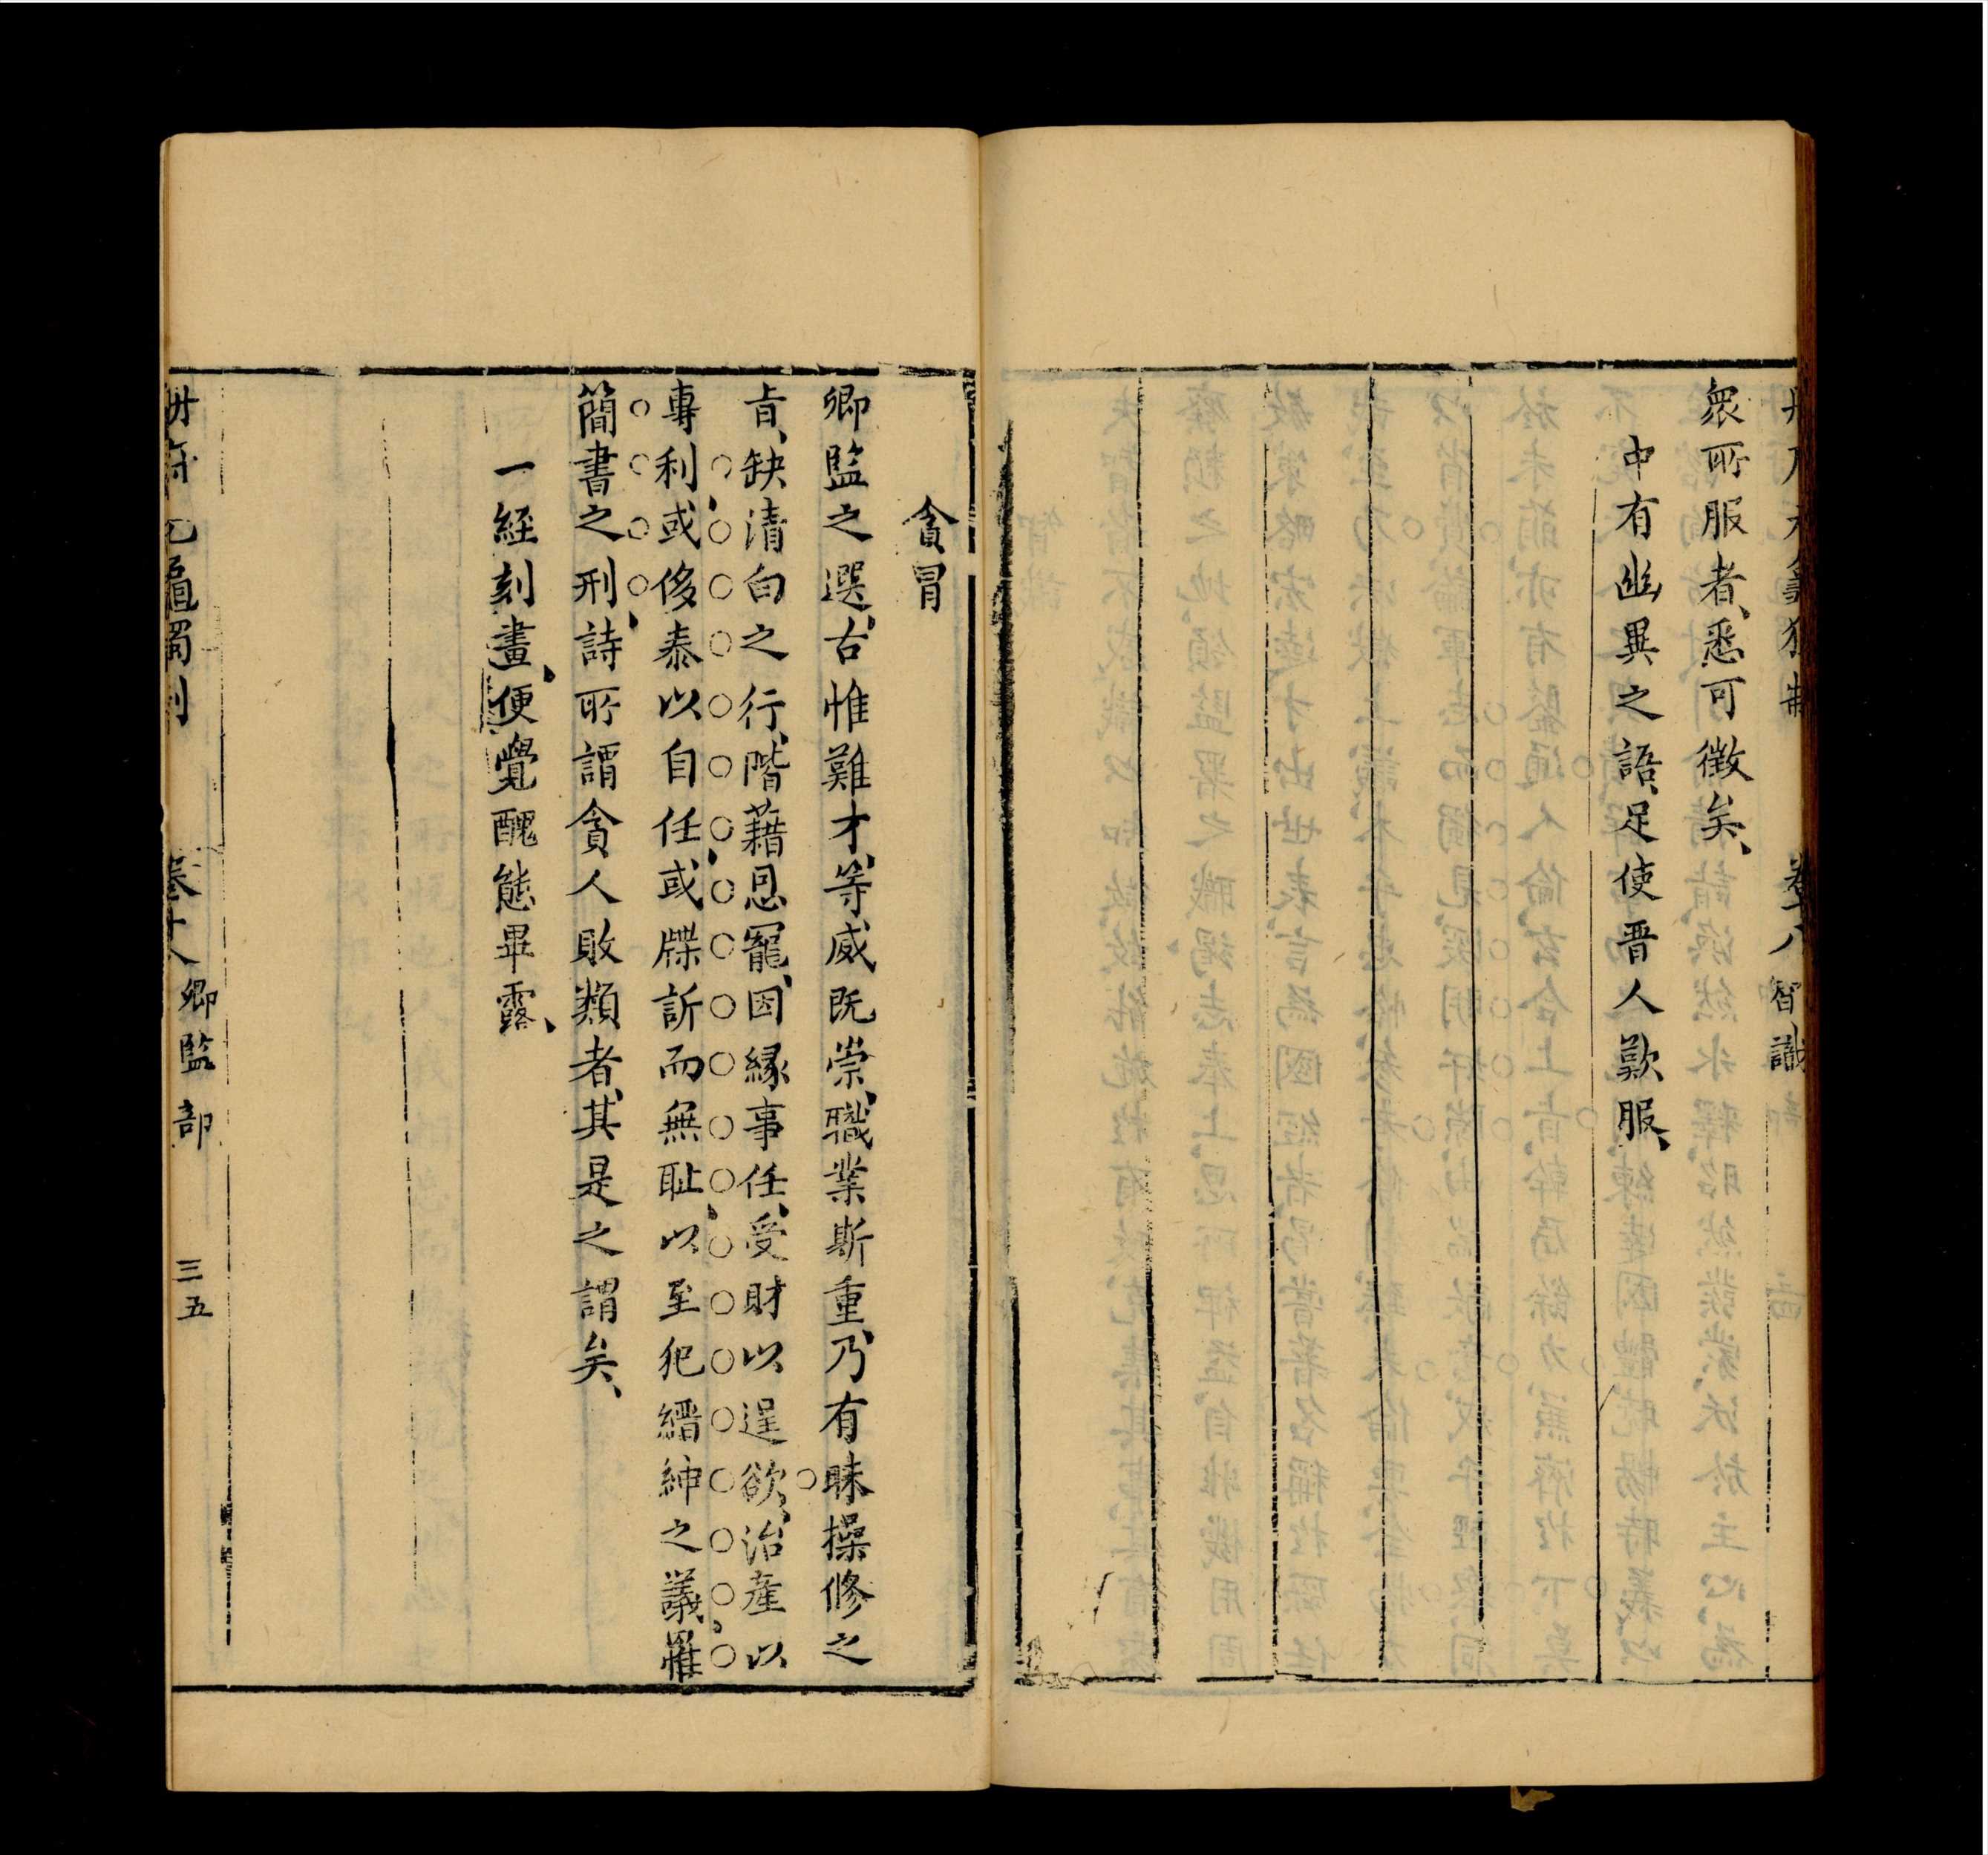 卷十八 智識
衆所服者、悉可徴矣、
中有幽異之語、足使晋人歎服、
貪冒
卿監之選、古惟難才、等威既崇、職業斯重、乃有昧操修之
旨、缺清白之行、階藉恩寵、因縁事任、受財以逞欲、治産以
專利、或侈泰以自任、或牒訴而無耻、以至犯縉紳之議、罹
簡書之刑、詩所謂貪人敗類者、其是之謂矣、
一經刻畫、便覺醜態畢露、
册府元龜獨制 卷十八 卿監部 三五